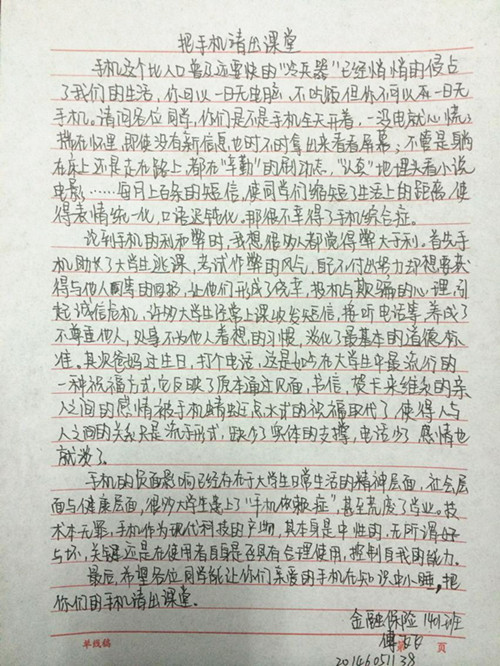 把手机请出课堂
手机这个比人口普及还要快的“冷兵器”已经悄悄的侵占
了我们的生活，你可以一日无电脑，不吃饭但你不可以一日无
手机。请问各位同学，你们是不是手机全天开着，一没电就心慌了
揣在怀里，即使没有新信息也时不时拿出来看看屏幕；不管是躺
在床上还是走在路上，都在“辛勤”的刷动态，“认真”地埋头看小说
电影……每月上百条的短信，使同学们缩短了生活上的距离，使
得表情统一化，口语迟钝化。那很不幸得了手机综合症。
说到手机的利和弊时，我想很多人都觉得弊大于利。首先手
机助长了大学生逃课，考试作弊的风气，自己不付出努力却想要获
得与他人同等的回报，让他们形成了侥幸，投机与欺骗的心理，引
起诚信危机，许多大学生经常上课收发短信，接听电话等，养成了
不尊重他人，处事不为他人着想的习惯，淡化了最基本的道德标
准。其次爸妈过生日，打个电话，这是如今在大学生中最流行的
一种祝福方式，它反映了原本通过见面，书信，贺卡来维系的亲
人之间的感情被手机蜻蜓点水式的祝福取代了，使得人与
人之间的关系只是流于形式，缺少了实体的支撑，电话少了，感情也
就淡了。
手机的负面影响已经存在于大学生日常生活的精神层面，社会层
面与健康层面，很多大学生患上了“手机依赖症”，甚至荒废了学业。技
术本无罪，手机作为现代科技的产物，其本身是中性的，无所谓好
与坏，关键还是在使用者自身是否具有合理使用，控制自我的能力。
最后，希望各位同学能让你们亲爱的手机在知识中小睡，把
你们的手机请出课堂。
金融保险1401班
20146051138
单线稿 第 页